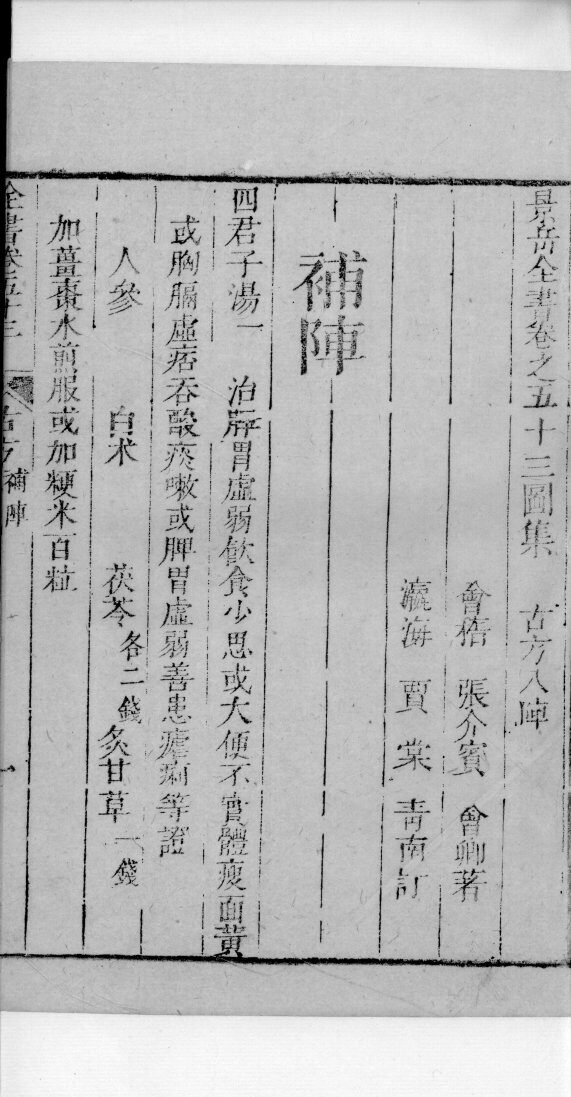 景岳全書卷之五十三圖集 古方八陣
會稽 張介賓 會卿著
瀛海 賈棠 青南訂
補陣
四君子湯一 治脾胃虛弱飲食少思或大便不實體瘦面黃
或胸膈虛痞吞酸痰嗽或脾胃虛弱善患瘧痢等證
人參 白朮 茯苓各二錢 炙甘草一錢
加薑棗水煎服或加粳米百粒
全書卷五十三 古方補陣 一